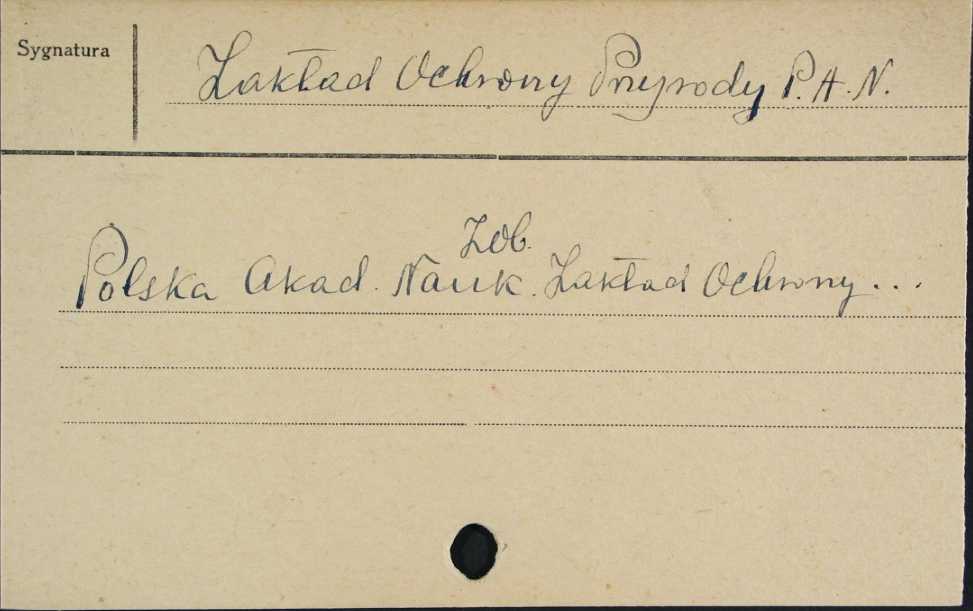 Sygnatura
Zakład Ochrony Przyrody P.A.N.
Zob.
Polska Akad. Nauk. Zakład Ochrony...